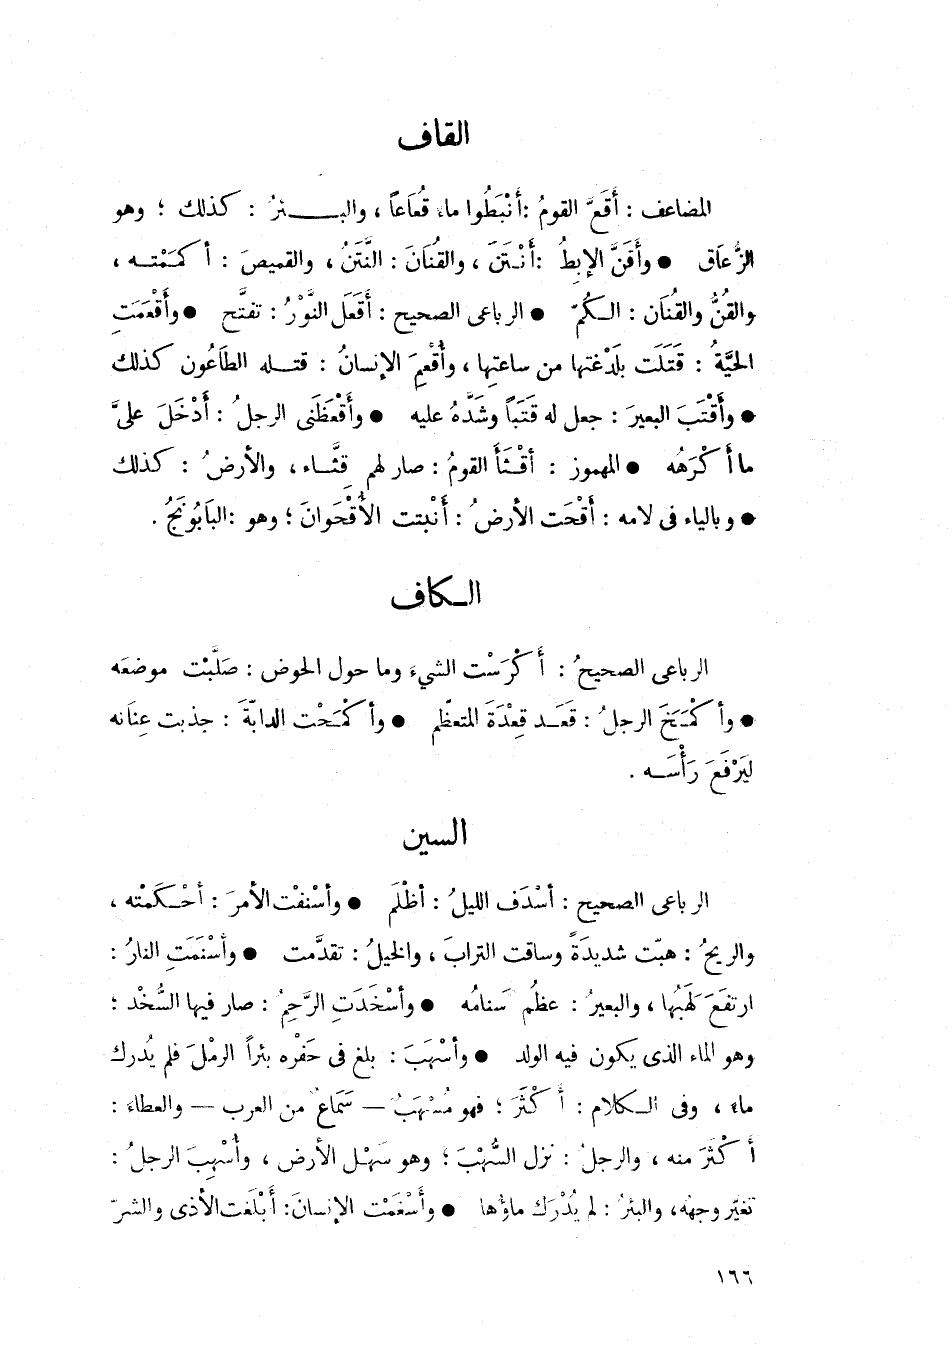 القاف
المضاعف : أَقَعَّ القومُ :أنْبَطُوا ماء قُعَاعاً ، والبـــئرُ : كذلك ؛ وهو
الزُّعَاق ● وأَقَنَّ الإبِطُ :أَنْـتَنَ ، والقُنَانَ : النَّتَنُ ، والقميصَ : أكمَمْتـه ،
والقُنُّ والقُنَان : الـكُمّ ● الرباعى الصحيح : أَقَعَلَ النَّوْرُ : تفتَّح ● وأَقْعَمَتِ
الحيَّةُ : قَتَلَت بلَدْغتها من ساعتِها ، وأُقْعِمَ الإنسانُ : قتـله الطاعُون كذلك
● وأَقْتَبَ البعيرَ : جعل له قَتَباً وشَدَّهُ عليه ● وأَقْعَظَنى الرجلُ : أَدْخَلَ علىَّ
ما أَكْرَهُه ● المهموز : أقْـثَأَ القومُ : صار لهم قِثَّـاء ، والأرضُ : كذلك
● وبالياء فى لامه : أَقْحَت الأرضُ : أَنْبتت الأُقْحَوانَ ؛ وهو :البَابُونَجُ .
الـكاف
الرباعى الصحيحُ : أَكْرَسْت الشيءَ وما حول الحوض : صَلَّبْت موضعَه
● وأكْمَـخَ الرجلُ : قَعَـد قِعْدَةَ المتعظّم ● وأكْمَـحْت الدابّةَ : جذبت عِنَانه
ليَرْفَعَ رَأْسَـه .
السين
الرباعى الصحيح : أسْدَف الليلُ : أظْلَم ● وأسْنفْت الأمرَ : أحْـكَمْته ،
والريحُ : هبّت شديدَةً وساقت الترابَ ، والخيلُ : تقدَّمت ● وأسْنَمَتِ النارُ :
ارتفَعَ لَهَبُها ، والبعيرُ : عظُم سَنامُه ● وأسْخَدَتِ الرَّحِمُ : صار فيها السُّخْد ؛
وهو الماء الذى يكون فيه الولد ● وأسْهَبَ : بلغ فى حَفْره بئراً الرمْلَ فلم يُدرك
ماء ، وفى الـكلام : أَكْثَرَ ؛ فهو مُسْهَبٌ – سَمَاعٌ من العرب – والعطاءَ :
أَكْثَرَ منه ، والرجلُ : نزل السُّهْبَ ؛ وهو سَهْـل الأرض ، وأُسْهِبَ الرجلُ :
تغيّر وجهُه، والبئرُ : لم يُدْرَك ماؤها ● وأَسْغَمْت الإنسانَ: أَبْلَغت الأذى والشرّ
١٦٦